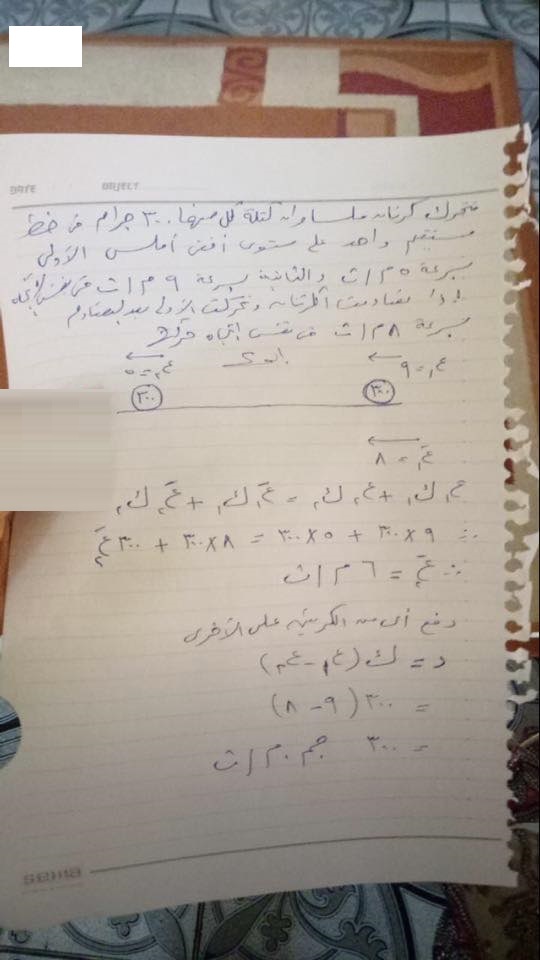 DATE OBJECT
تتحرك كرتان ملساوان كتلة كل منهما ٣٠٠ جرام فى خط
مستقيم واحد على مستوى أفقى أملس الأولى
بسرعة ٥ م/ث والثانية بسرعة ٩ م/ث فى نفس الاتجاه
إذا تصادمت الكرتان وتحركت الأولى بعد التصادم
بسرعة ٨ م/ث فى نفس اتجاه حركتها
ع = ٩ ع = ٥
٣٠٠ ٣٠٠
عَ = ٨
ع١ ك١ + ع٢ ك٢ = عَ١ ك١ + عَ٢ ك٢
∴ ٩×٣٠٠ + ٥×٣٠٠ = ٨×٣٠٠ + ٣٠٠ عَ٢
∴ عَ٢ = ٦ م/ث
دفع أى من الكرتين على الأخرى
د = ك (عَ١ - ع١)
= ٣٠٠ (٩ - ٨)
= ٣٠٠ جم.م/ث